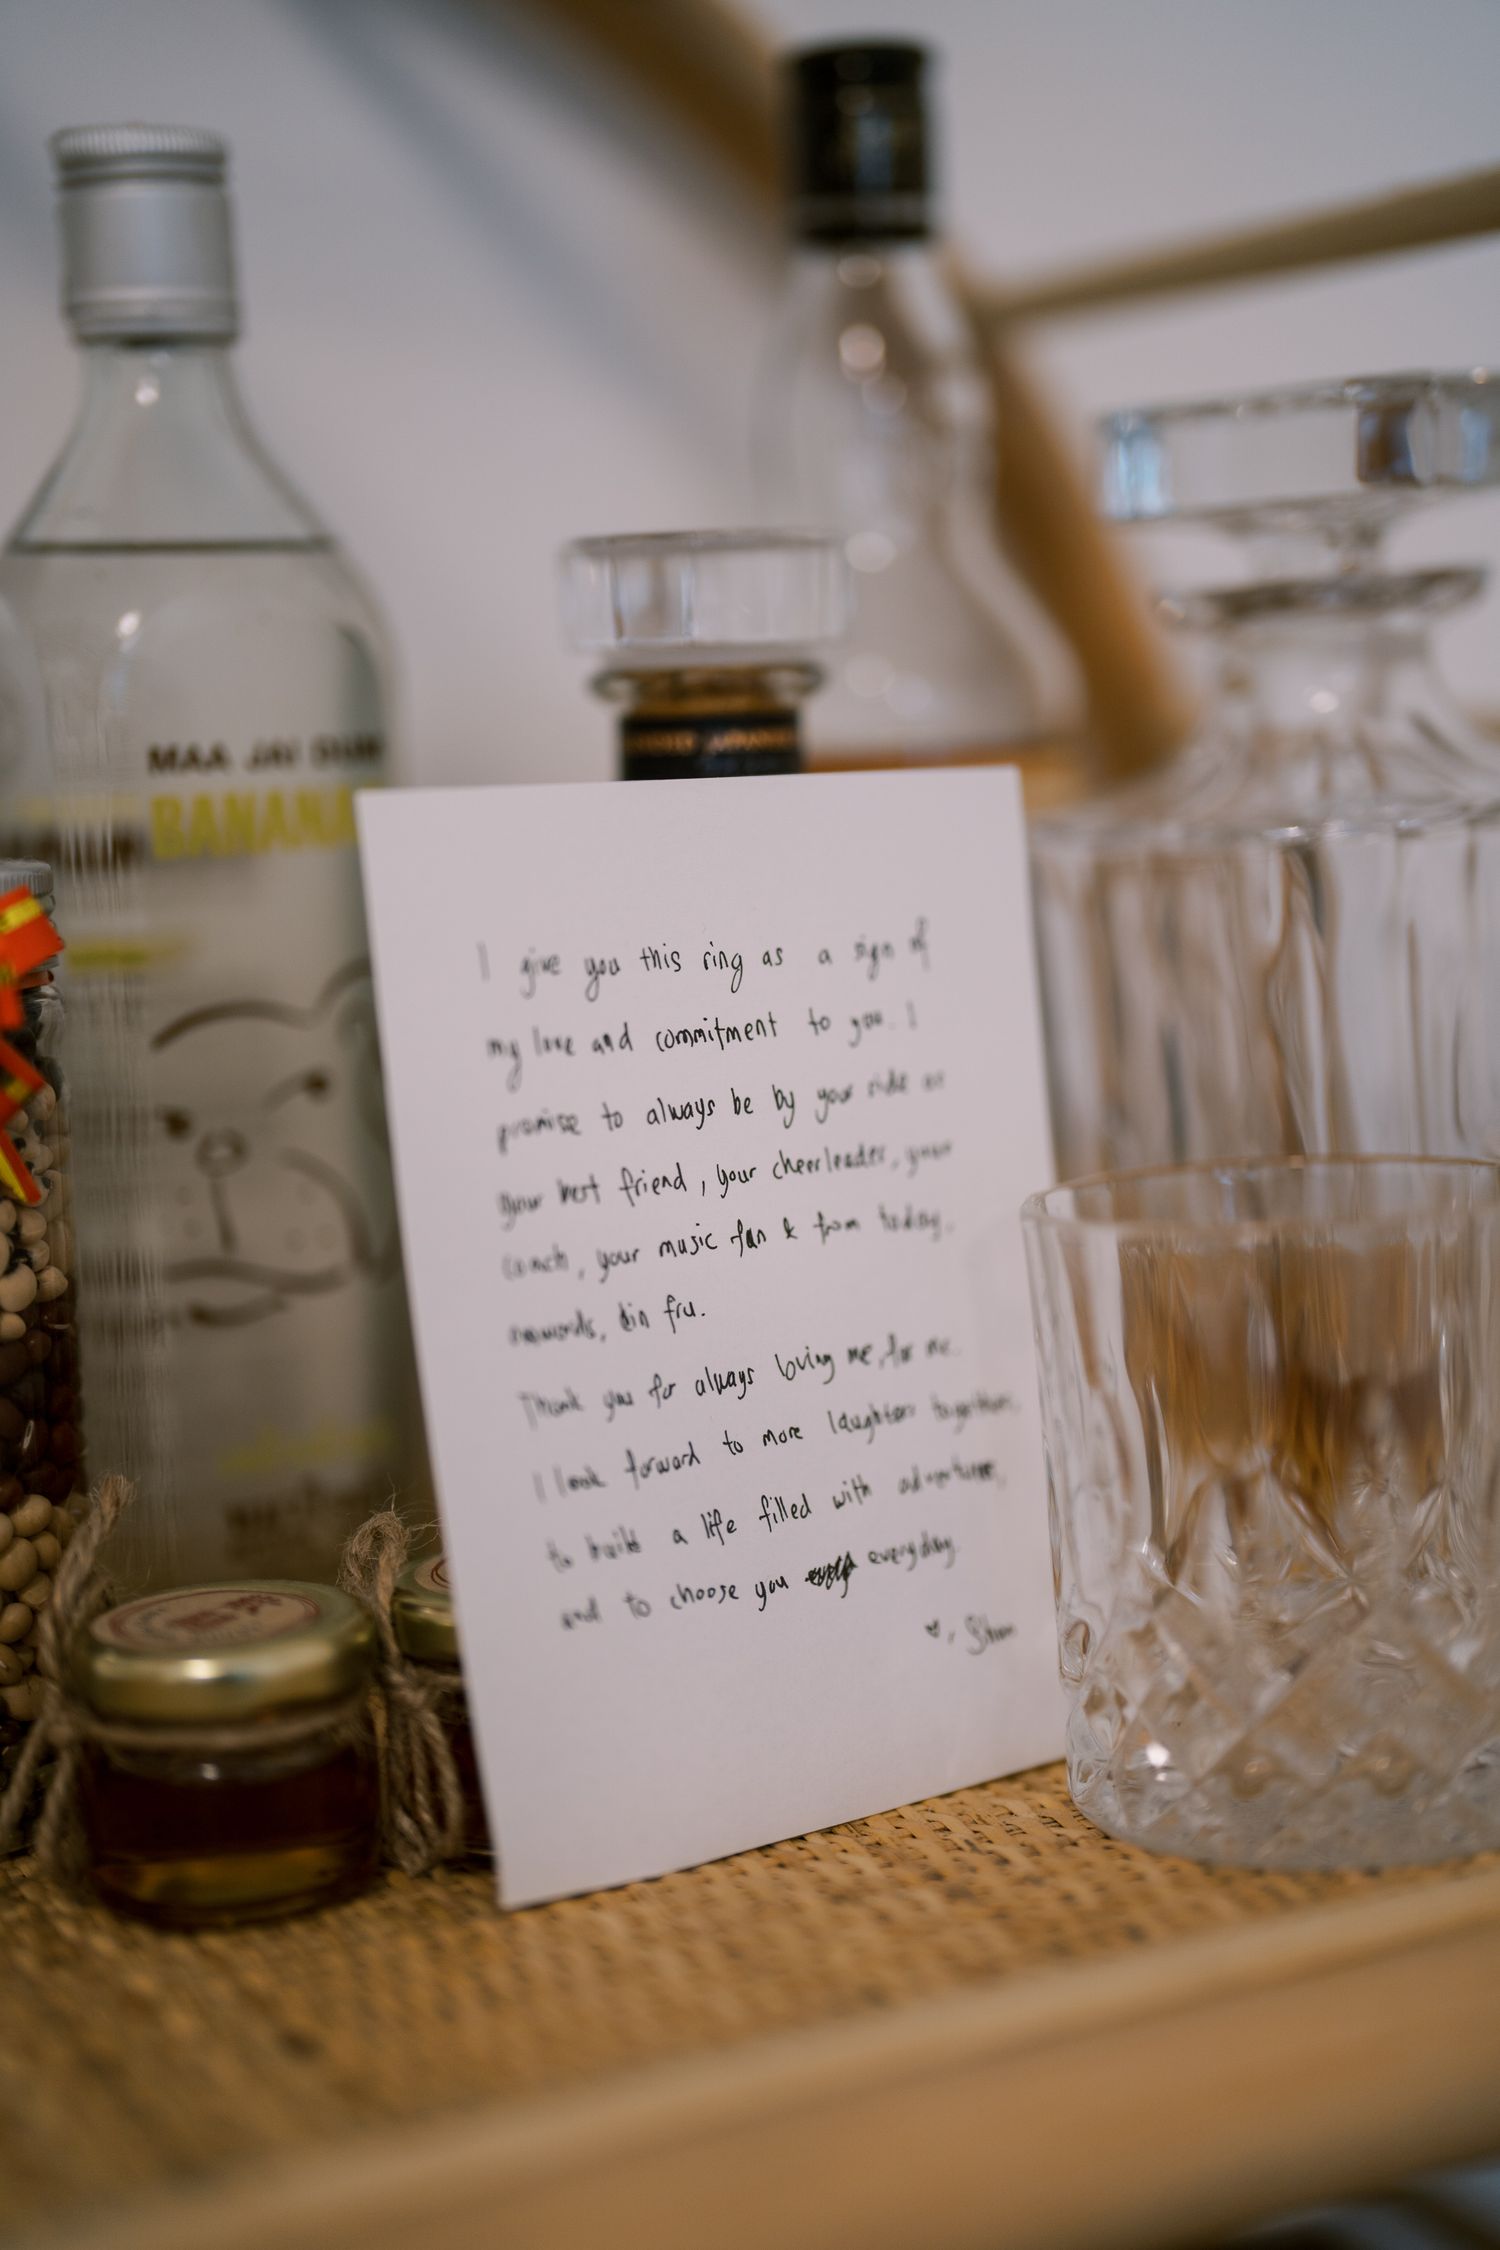 MAA JAI
BANANA
I give you this ring as a sign of
my love and commitment to you. I
promise to always be by your side as
your best friend, your cheerleader, your
coach, your music fan & from today,
onwards, fru.
Thank you for always loving me, for me.
I look forward to more laughters together,
to build a life filled with adventures,
and to choose you everyday.